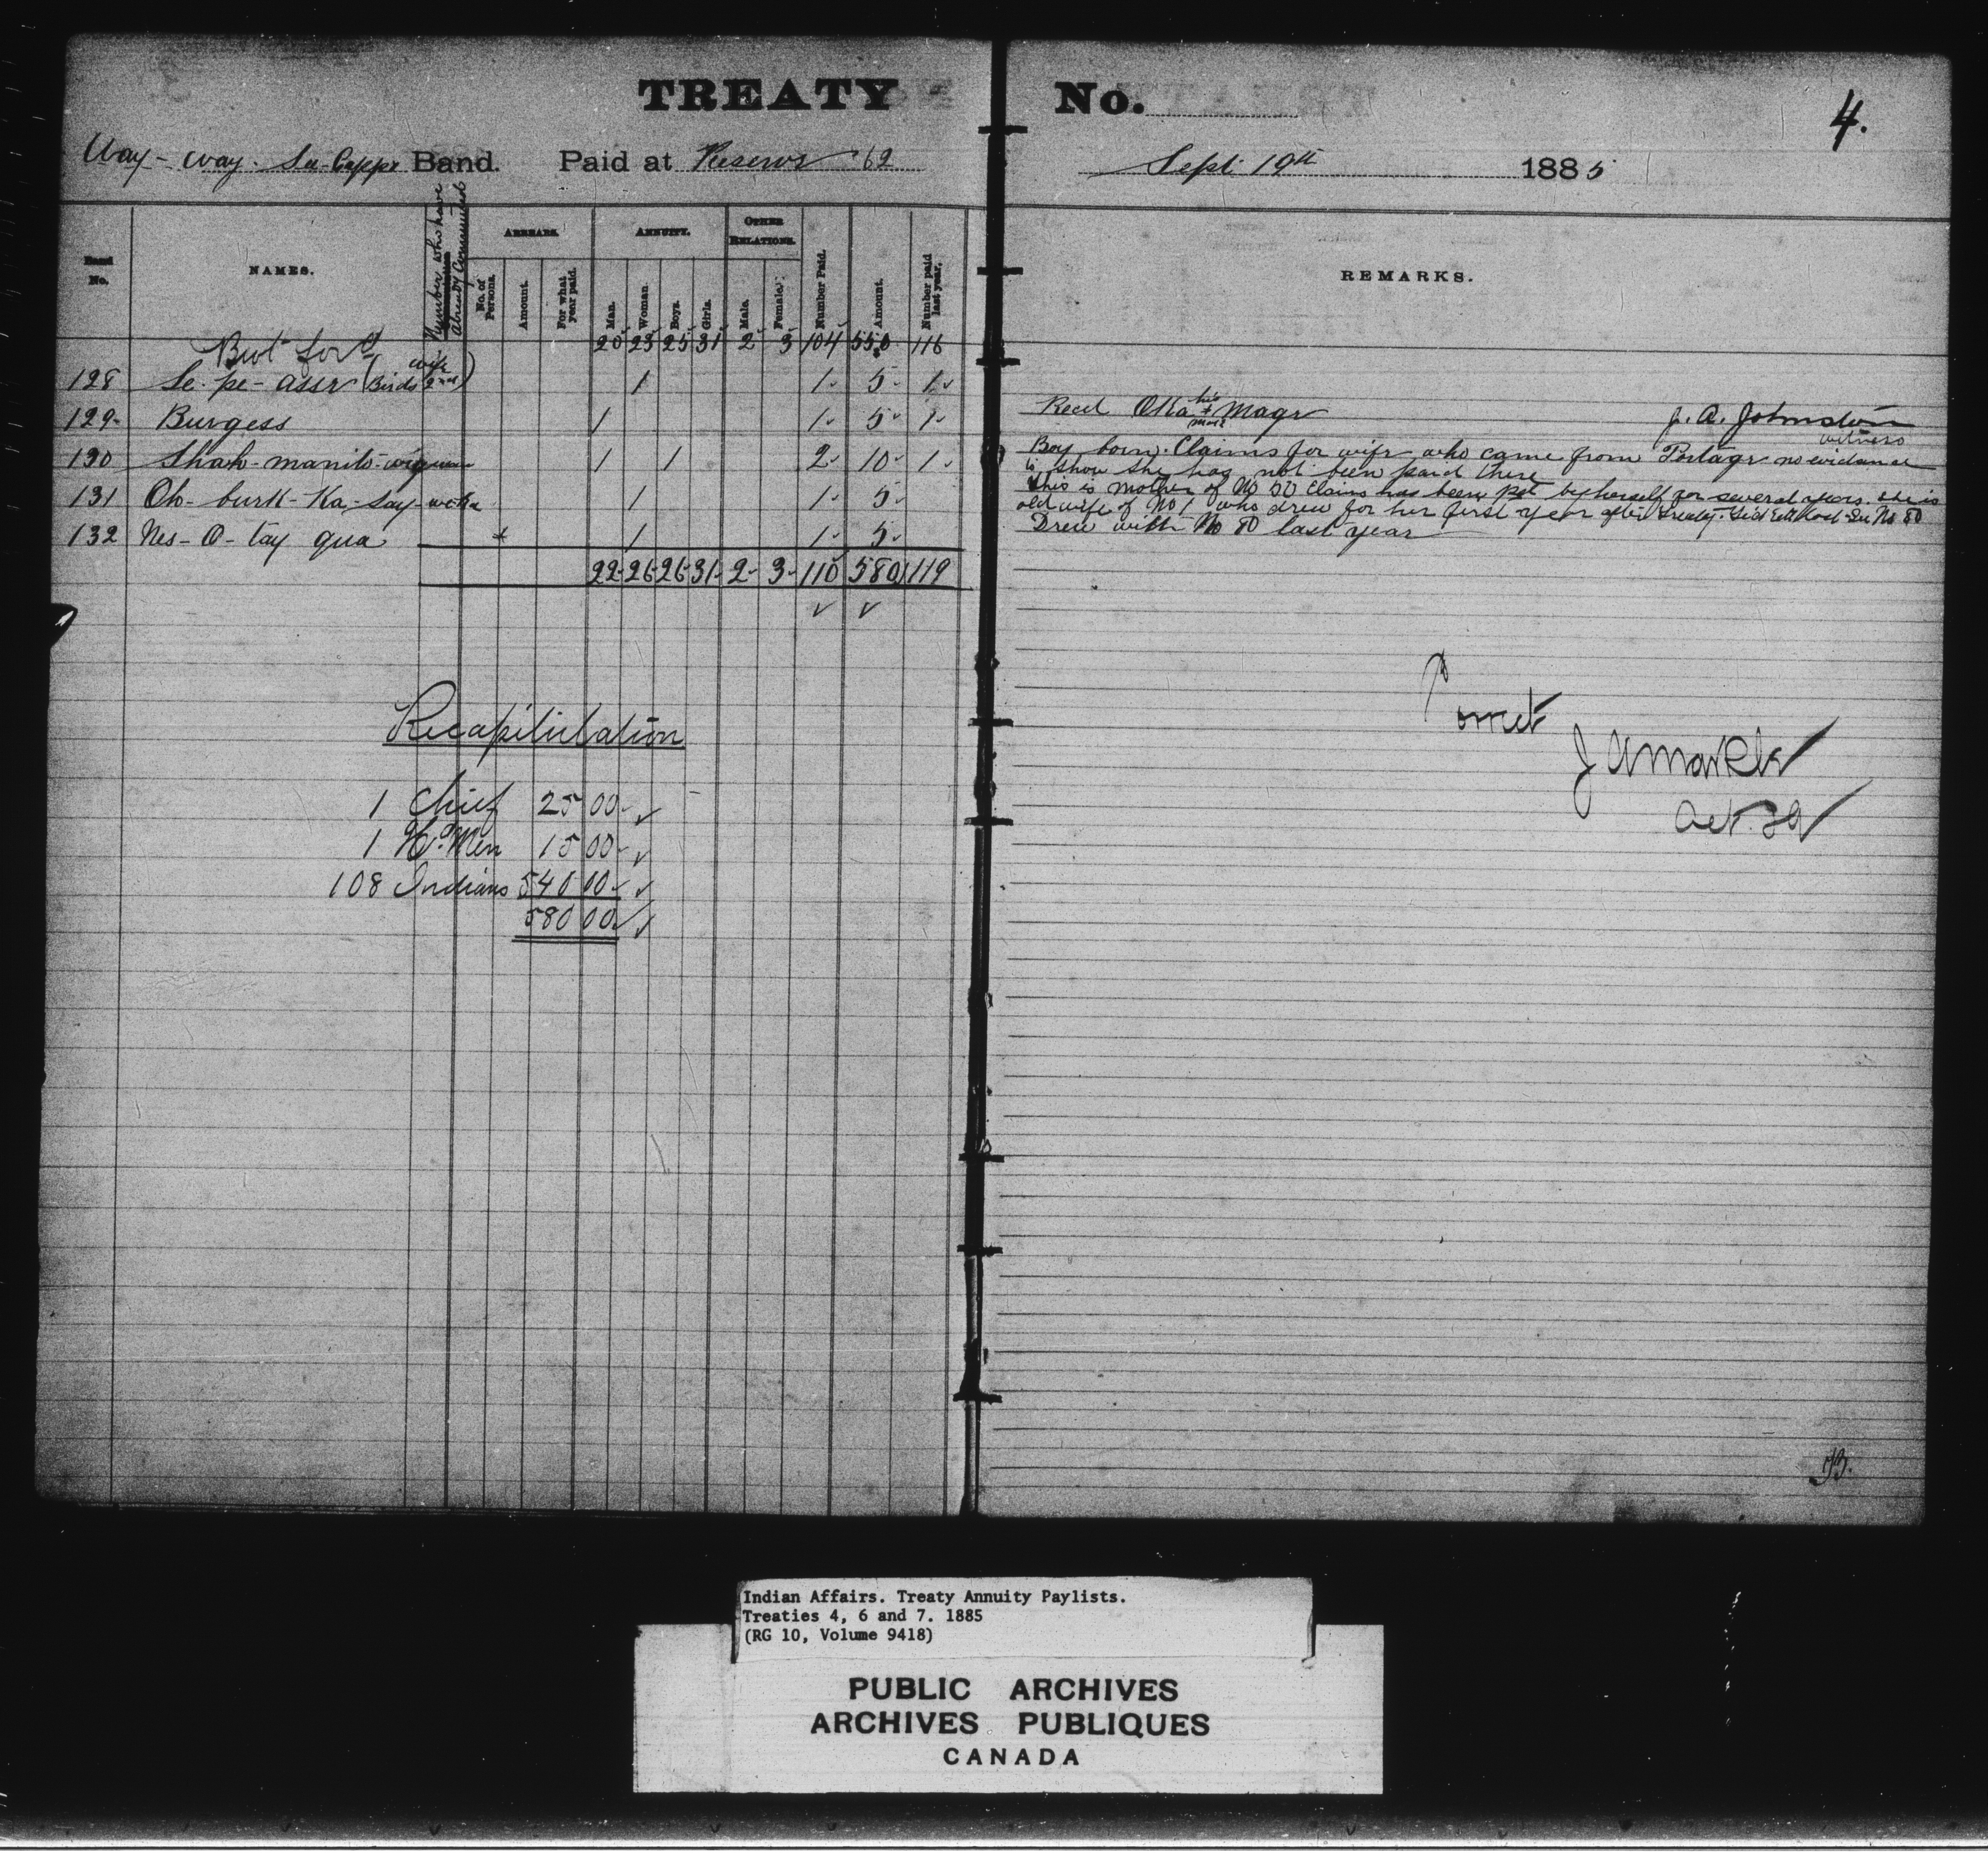 TREATY No.
4.
Way-way-See-Cappe Band. Paid at Reserve 62 Sept 19th 1885
Band No.
NAMES.
Number who have already Commuted
ARREARS.
No. of Persons.
Amount.
For what year paid.
ANNUITY.
Man.
Woman.
Boys.
Girls.
OTHER RELATIONS.
Male.
Female.
Number Paid.
Amount.
Number paid last year.
REMARKS.
Brot ford 20 23 25 31 2 3 104 550 116
128 Se-pe-assr (Birds 2nd wife) 1 1 5 1
129 Burgess 1 1 5 1 Recd Oka his + mark Magr J. A. Johnston witness
130 Shah-manito-wigwan 1 1 2 10 1 Boy born. Claims for wife who came from Portage no evidence
to show she has not been paid there
131 Oh-burk-Ka-Say-weka 1 1 5 This is mother of No 50 Claims has been pd by herself for several years. She is
old wife of No 1 who drew for her first year after Treaty. See No 80
132 Nes-O-tay qua + 1 1 5 Drew with No 80 last year
22 26 26 31 2 3 110 580 119
Recapitulation
1 Chief 25 00
1 Hd Men 15 00
108 Indians 540 00
580 00
Correct
J A Markle
Oct. 29
13.
Indian Affairs. Treaty Annuity Paylists.
Treaties 4, 6 and 7. 1885
(RG 10, Volume 9418)
PUBLIC ARCHIVES
ARCHIVES PUBLIQUES
CANADA